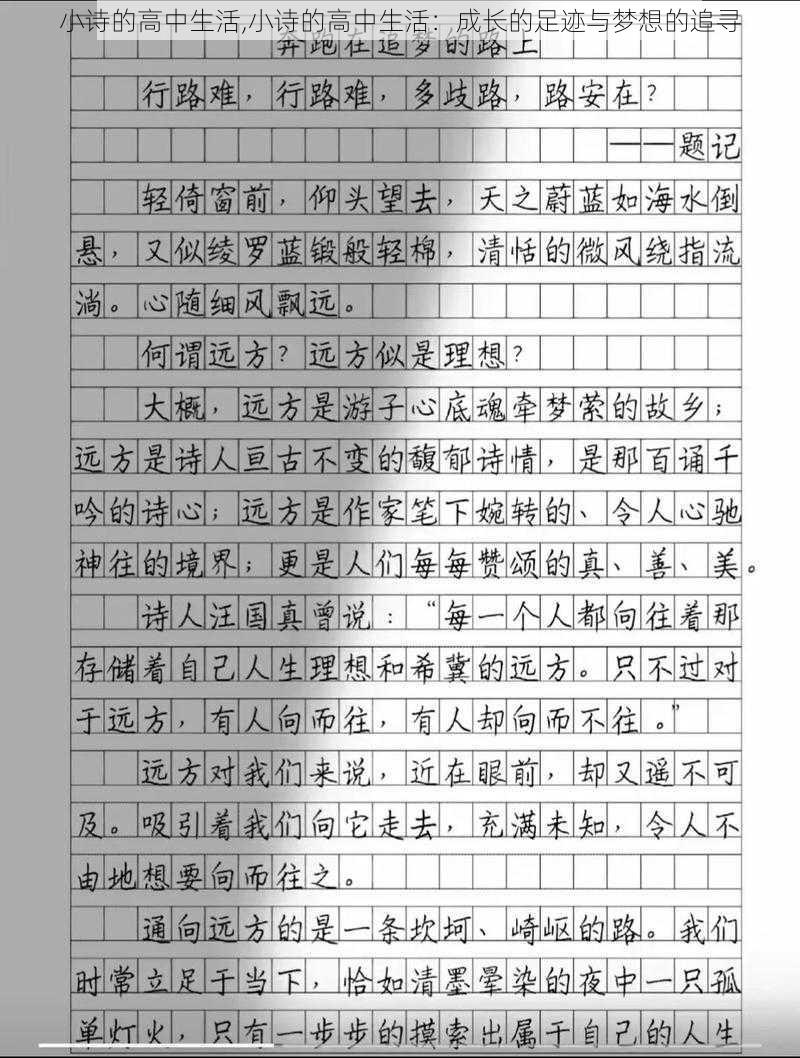 小诗的高中生活,小诗的高中生活：成长的足迹与梦想的追寻
奔跑在追梦的路上
行路难，行路难，多歧路，路安在？
——题记
轻倚窗前，仰头望去，天之蔚蓝如海水倒
悬，又似绫罗蓝锻般轻棉，清恬的微风绕指流
淌。心随细风飘远。
何谓远方？远方似是理想？
大概，远方是游子心底魂牵梦萦的故乡；
远方是诗人亘古不变的馥郁诗情，是那百诵千
吟的诗心；远方是作家笔下婉转的、令人心驰
神往的境界；更是人们每每赞颂的真、善、美。
诗人汪国真曾说：“每一个人都向往着那
存储着自己人生理想和希冀的远方。只不过对
于远方，有人向而往，有人却向而不往。”
远方对我们来说，近在眼前，却又遥不可
及。吸引着我们向它走去，充满未知，令人不
由地想要向而往之。
通向远方的是一条坎坷、崎岖的路。我们
时常立足于当下，恰如清墨晕染的夜中一只孤
单灯火，只有一步步的摸索出属于自己的人生